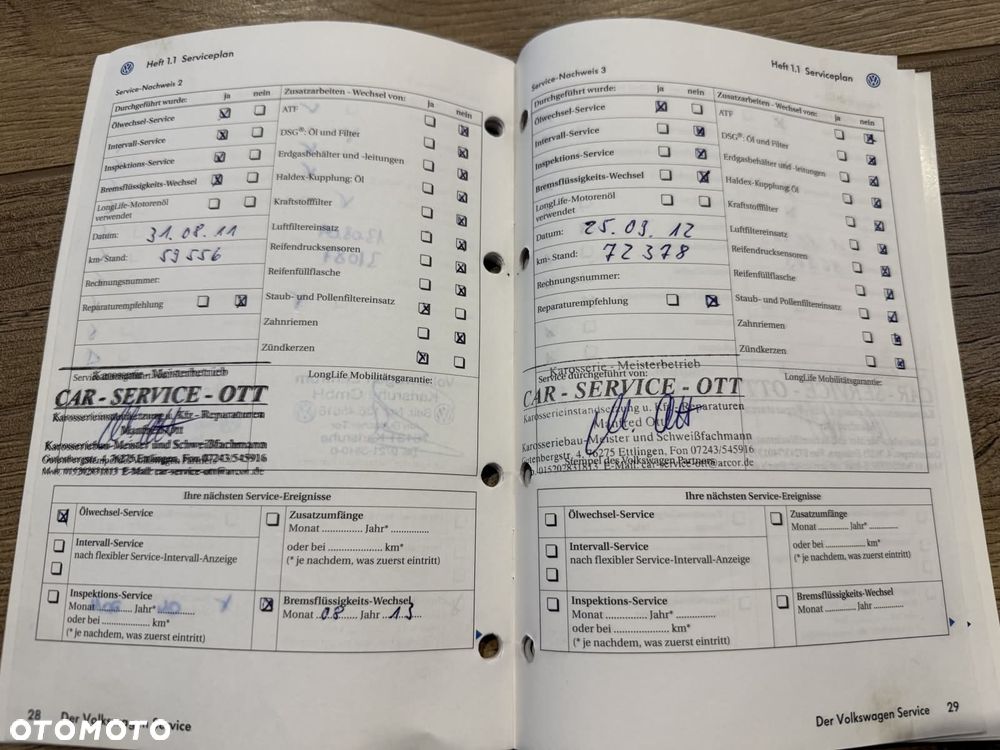 Heft 1.1 Serviceplan
Service-Nachweis 2
Durchgeführt wurde: ja nein
Ölwechsel-Service
Intervall-Service
Inspektions-Service
Bremsflüssigkeits-Wechsel
LongLife-Motorenöl
verwendet
Datum: 31.08.11
km-Stand: 59556
Rechnungsnummer:
Reparaturempfehlung
Zusatzarbeiten - Wechsel von: ja nein
ATF
DSG®: Öl und Filter
Erdgasbehälter und -leitungen
Haldex-Kupplung: Öl
Kraftstofffilter
Luftfiltereinsatz
Reifendrucksensoren
Reifenfüllflasche
Staub- und Pollenfiltereinsatz
Zahnriemen
Zündkerzen
LongLife Mobilitätsgarantie:
Karosserie - Meisterbetrieb
CAR - SERVICE - OTT
Karosserieinstandsetzung u. Kfz - Reparaturen
Manfred Ott
Karosseriebau-Meister und Schweißfachmann
Gutenbergstr. 4, 76275 Ettlingen, Fon 07243/545916
Mob. 015202831813 E-Mail: car-service-ott@arcor.de
Ihre nächsten Service-Ereignisse
Ölwechsel-Service
Intervall-Service
nach flexibler Service-Intervall-Anzeige
Inspektions-Service
Monat ............ Jahr* ............
oder bei ..................... km*
(* je nachdem, was zuerst eintritt)
Zusatzumfänge
Monat ............ Jahr* ............
oder bei ..................... km*
(* je nachdem, was zuerst eintritt)
Bremsflüssigkeits-Wechsel
Monat 08 Jahr 13
28 Der Volkswagen Service
Heft 1.1 Serviceplan
Service-Nachweis 3
Durchgeführt wurde: ja nein
Ölwechsel-Service
Intervall-Service
Inspektions-Service
Bremsflüssigkeits-Wechsel
LongLife-Motorenöl
verwendet
Datum: 25.09.12
km-Stand: 72378
Rechnungsnummer:
Reparaturempfehlung
Zusatzarbeiten - Wechsel von: ja nein
ATF
DSG®: Öl und Filter
Erdgasbehälter und -leitungen
Haldex-Kupplung: Öl
Kraftstofffilter
Luftfiltereinsatz
Reifendrucksensoren
Reifenfüllflasche
Staub- und Pollenfiltereinsatz
Zahnriemen
Zündkerzen
LongLife Mobilitätsgarantie:
Karosserie - Meisterbetrieb
Service durchgeführt von:
CAR - SERVICE - OTT
Karosserieinstandsetzung u. Kfz - Reparaturen
Manfred Ott
Karosseriebau-Meister und Schweißfachmann
Gutenbergstr. 4, 76275 Ettlingen, Fon 07243/545916
Stempel des Volkswagen Partners
Mob. 015202831813 E-Mail: car-service-ott@arcor.de
Ihre nächsten Service-Ereignisse
Ölwechsel-Service
Intervall-Service
nach flexibler Service-Intervall-Anzeige
Inspektions-Service
Monat ............ Jahr* ............
oder bei ..................... km*
(* je nachdem, was zuerst eintritt)
Zusatzumfänge
Monat ............ Jahr* ............
oder bei ..................... km*
(* je nachdem, was zuerst eintritt)
Bremsflüssigkeits-Wechsel
Monat ............ Jahr ............
Der Volkswagen Service 29
OTOMOTO